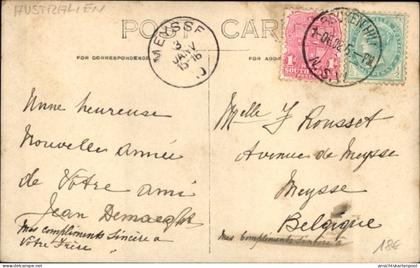 AUSTRALIEN
POST CARD
FOR CORRESPONDENCE
MEYSSE
3
JANV
15-16
N.S.W.
SOUTH
Une heureuse
Nouvelle année
de Votre ami
Jean Demaeght
Mes compliments Sincère a
Vôtre Frère
Melle J Rousset
Avenue de Meysse
Meysse
Belgique
Mes compliments Sincère
18€